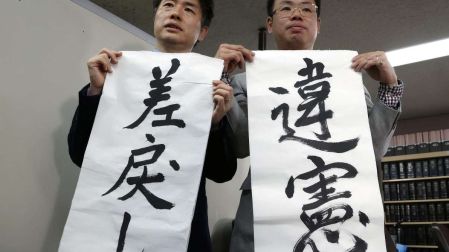 違憲
差戻し